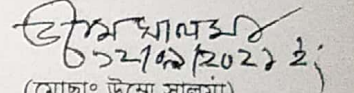 উম্মে সালমা
০১২/০৯/২০২১ ইং
(মোছাঃ উম্মে সালমা)